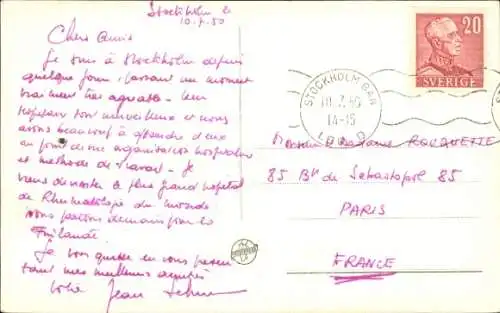 Stockholm le
10.7.50
Chers Amis
Je suis à Stockholm depuis
quelques jours passant un moment
vraiment très agréable. Leurs
hôpitaux sont merveilleux et nous
avons beaucoup à apprendre d'eux
au point de vue organisation hospitalière
et méthodes de travail. Je
viens de visiter le plus grand hôpital
de Rhumatologie du monde
nous partons demain pour la
Finlande.
Je vous quitte en vous
mes meilleures amitiés
votre Jean
20
SVERIGE
STOCKHOLM BAN
10.7.50
14-15
Monsieur Madame ROUQUETTE
85 Bd de Sebastopol 85
PARIS
FRANCE